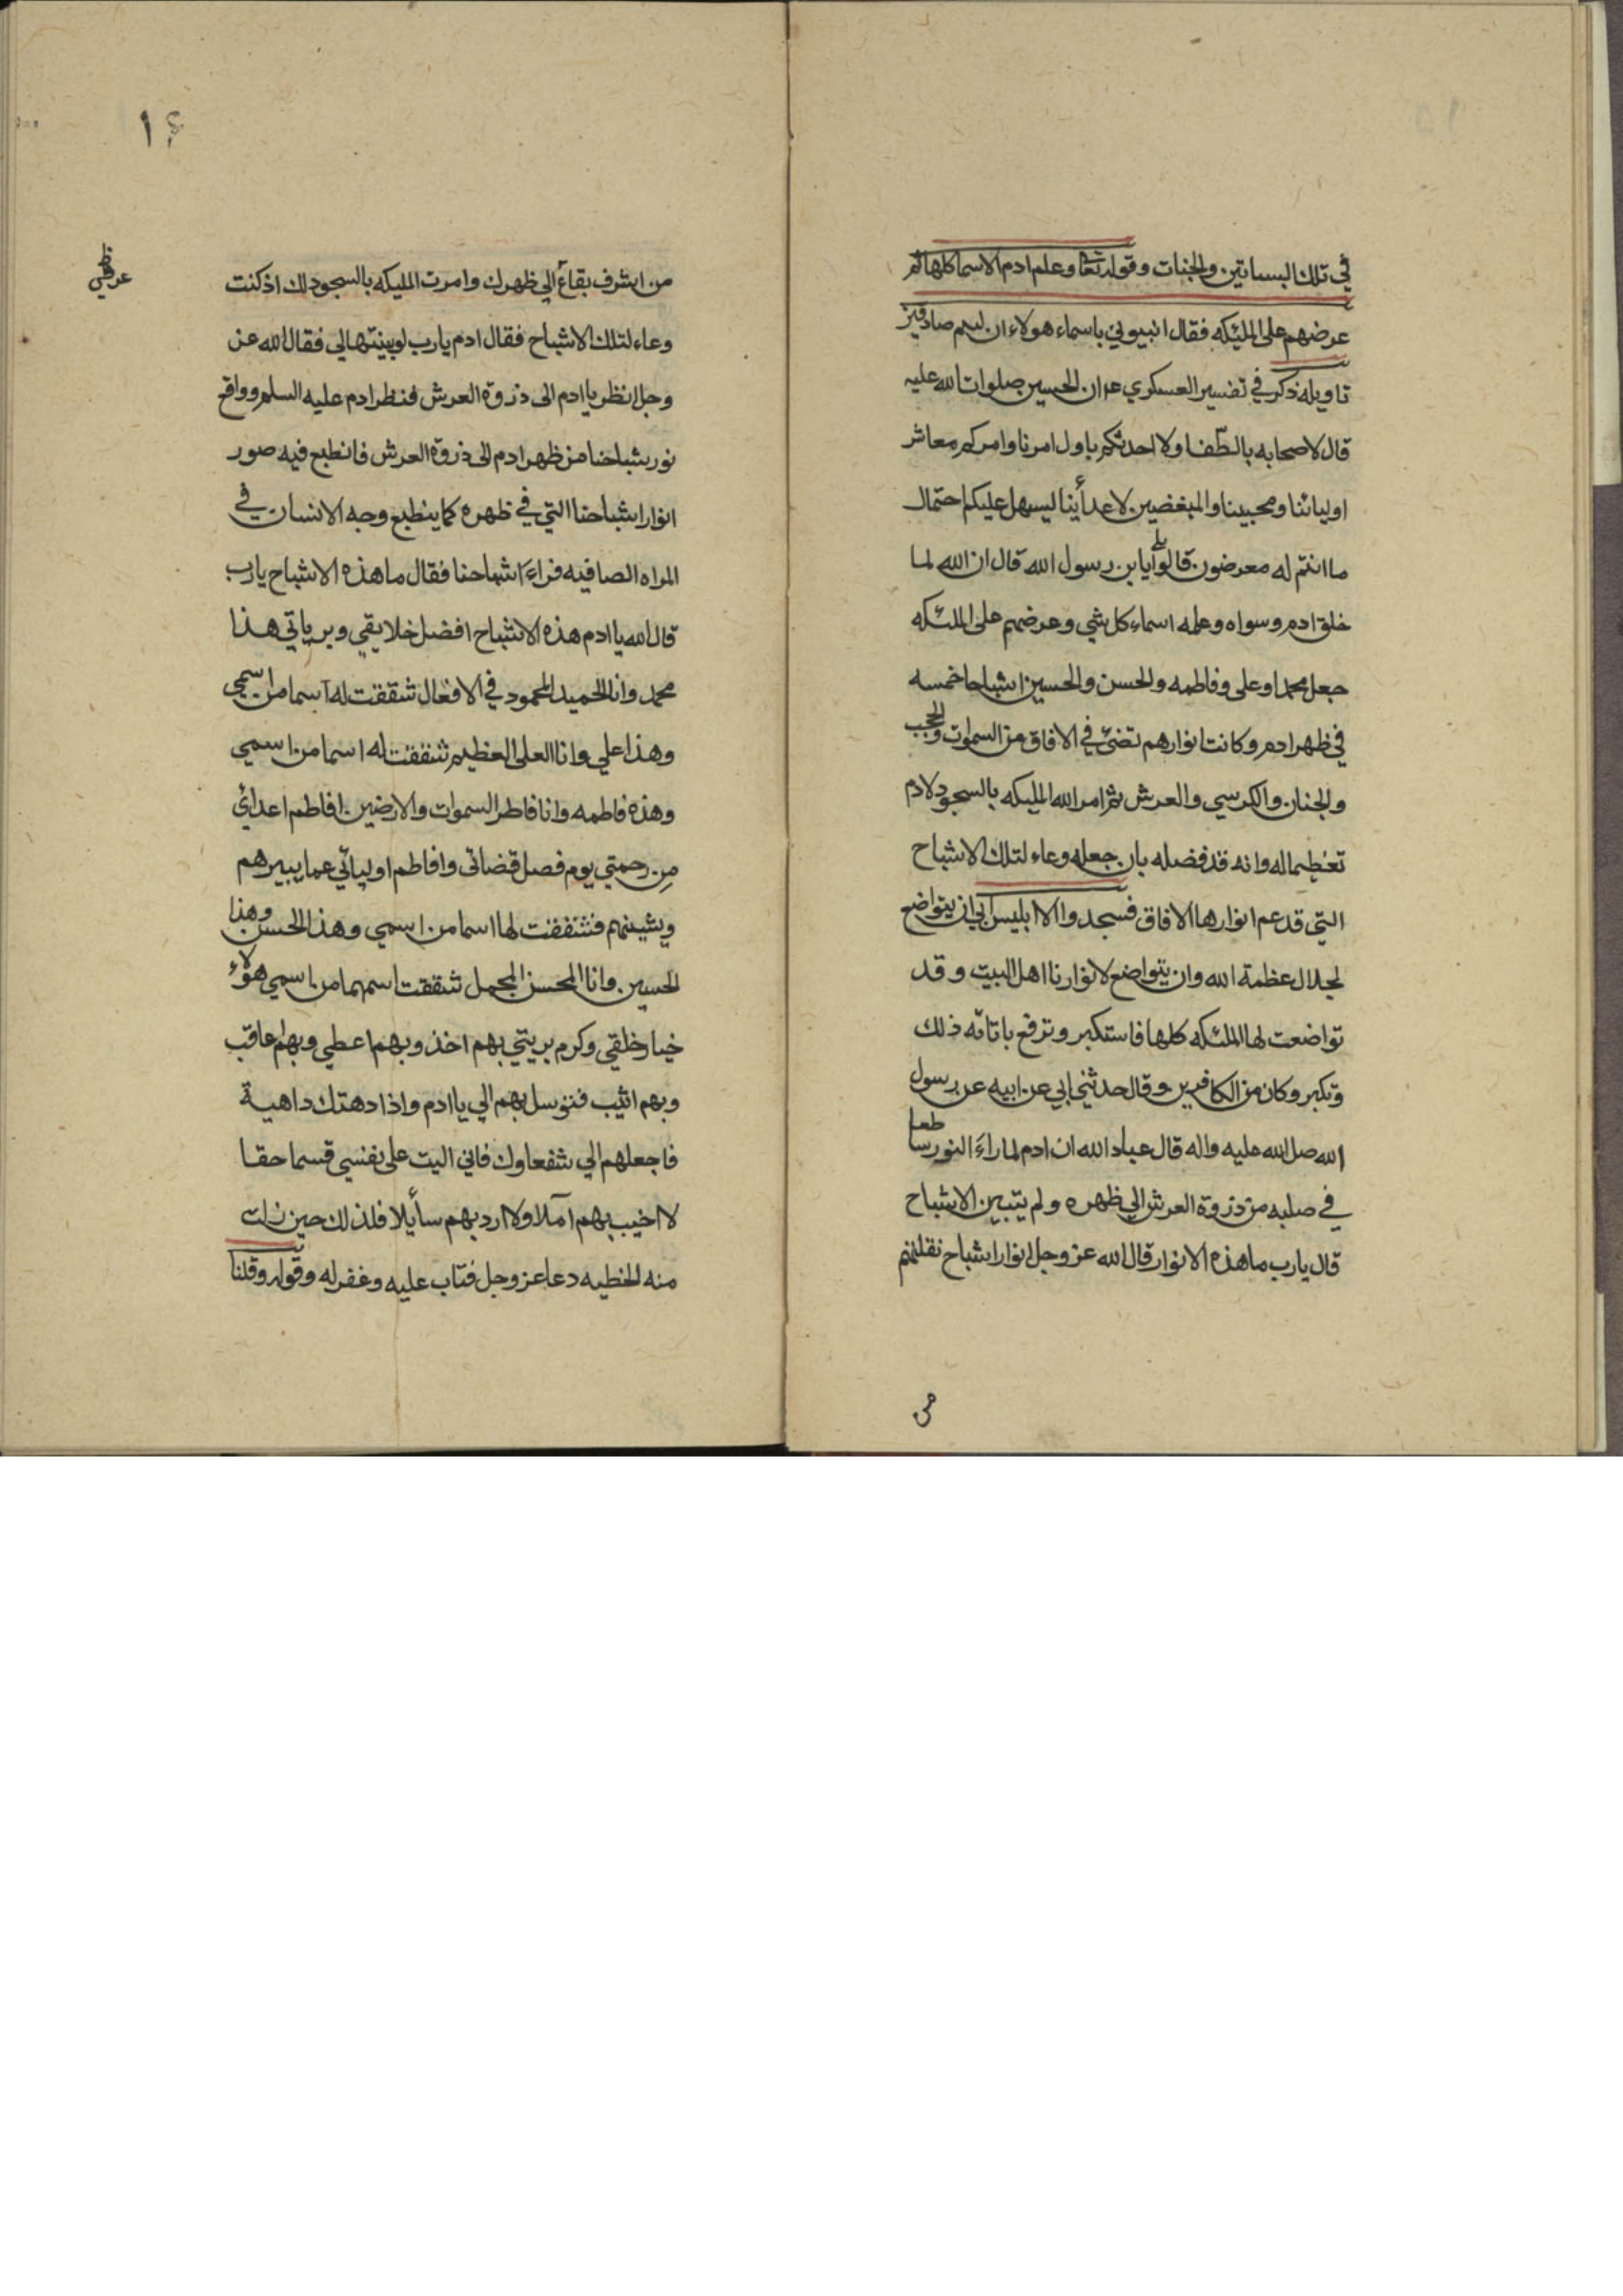 في تلك البساتين والجنات وقوله تعا وعلم ادم الاسما كلها ثم
عرضهم على المليكه فقال انبيوني باسماء هولاء ان كنتم صادقين
تاويله ذكر في تفسير العسكري ع ان الحسين صلوات الله عليه
قال لاصحابه بالطفا ولا احدثكم باول امرنا وامركم معاشر
اوليائنا ومحبينا والمبغضين لاعدأينا ليسهل عليكم احتمال
ما انتم له معرضون قالوا بلى يابن رسول الله قال ان الله لما
خلق ادم وسواه وعلمه اسماء كل شي وعرضهم على الملئكه
جعل محمدا وعلى وفاطمه والحسن والحسين اشباحا خمسه
في ظهر ادم وكانت انوارهم تضئ في الافاق من السموات والحجب
والجنان والكرسي والعرش ثم امر الله المليكه بالسجود لادم
تعظيما له وانه قد فضله بان جعله وعاء لتلك الاشباح
التي قد عم انوارها الافاق فسجدوا الا ابليس ابي ان يتواضع
لجلال عظمة الله وان يتواضع لانوارنا اهل البيت وقد
تواضعت لها الملئكه كلها فاستكبر وترفع باتائه ذلك
وتكبر وكان من الكافرين وقال حدثني ابي عن ابيه عن رسول
الله صل الله عليه واله قال عباد الله ان ادم لما راءَ النور ساطعا
في صلبه من ذروة العرش الي ظهره ولم يتبين الاشباح
قال يارب ما هذه الانوار قال الله عز وجل انوار اشباح نقلتهم
من
١٤
عرفي
من اشرف بقاع الي ظهرك وامرت المليكه بالسجود لك اذ كنت
وعاء لتلك الاشباح فقال ادم يارب لو بينتها لي فقال الله عز
وجل انظر يا ادم الى ذروة العرش فنظر ادم عليه السلم وواقع
نور بشباحنا من ظهر ادم الى ذروة العرش فانطبع فيه صور
انوار اشباحنا التي في ظهره كما ينطبع وجه الانسان في
المراه الصافيه فراءَ اشباحنا فقال ما هذه الاشباح يارب
قال الله يا ادم هذه الاشباح افضل خلايقي وبرياتي هذا
محمد وانا الحميد المحمود في الافعال شققت له اسما من اسمي
وهذا علي وانا العلى العظيم شققت له اسما من اسمي
وهذه فاطمه وانا فاطر السموات والارضين افاطم اعدائ
من رحمتي يوم فصل قضائى وافاطم اوليائي عما يبيرهم
ويشينهم فشققت لها اسما من اسمي وهذا الحسن وهذا
الحسين وانا المحسن المجمل شققت اسمهما من اسمي هولاء
خيار خلقي وكرم بريتي بهم اخذ وبهم اعطي وبهم اعاقب
وبهم اثيب فتوسل بهم الي يا ادم واذا دهتك داهية
فاجعلهم الي شفعاوك فاني اليت على نفسي قسما حقا
لا اخيب بهم آملا ولا ارد بهم سأيلا فلذلك حين زلت
منه الخطيه دعا عز وجل فتاب عليه وغفر له وقوله وقلنا